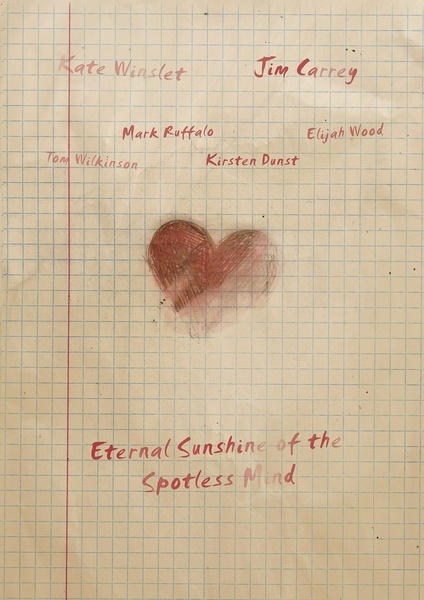 Kate Winslet Jim Carrey
Mark Ruffalo Elijah Wood
Tom Wilkinson Kirsten Dunst
Eternal Sunshine of the
Spotless Mind